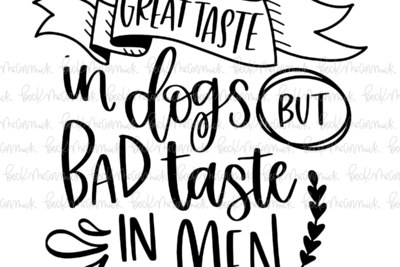 GREAT TASTE
in dogs BUT
BAD taste
IN MEN